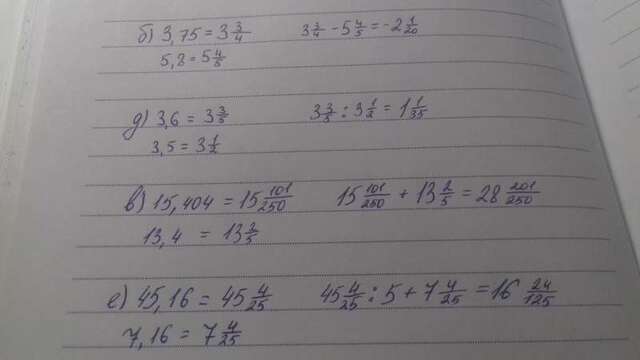 б) 3,75 = 3 3/4 3 3/4 - 5 4/5 = -2 1/20
5,8 = 5 4/5
д) 3,6 = 3 3/5 3 3/5 : 3 1/2 = 1 1/35
3,5 = 3 1/2
в) 15,404 = 15 101/250 15 101/250 + 13 2/5 = 28 201/250
13,4 = 13 2/5
е) 45,16 = 45 4/25 45 4/25 : 5 + 7 4/25 = 16 24/125
7,16 = 7 4/25